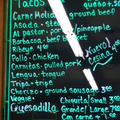 Tacos queso +.50
Carne Molida - ground beef
Asada - steak
Al pastor - pork/pineapple
Barbacoa - beef
Ribeye 4.00
Pollo - chicken
Carnitas - pulled pork
Lengua - tongue
Tripa - tripe
Chorizo - ground sausage
Veggie -
Quesadilla
Churro
Cecina
Chiquita/Small
Grande/Large